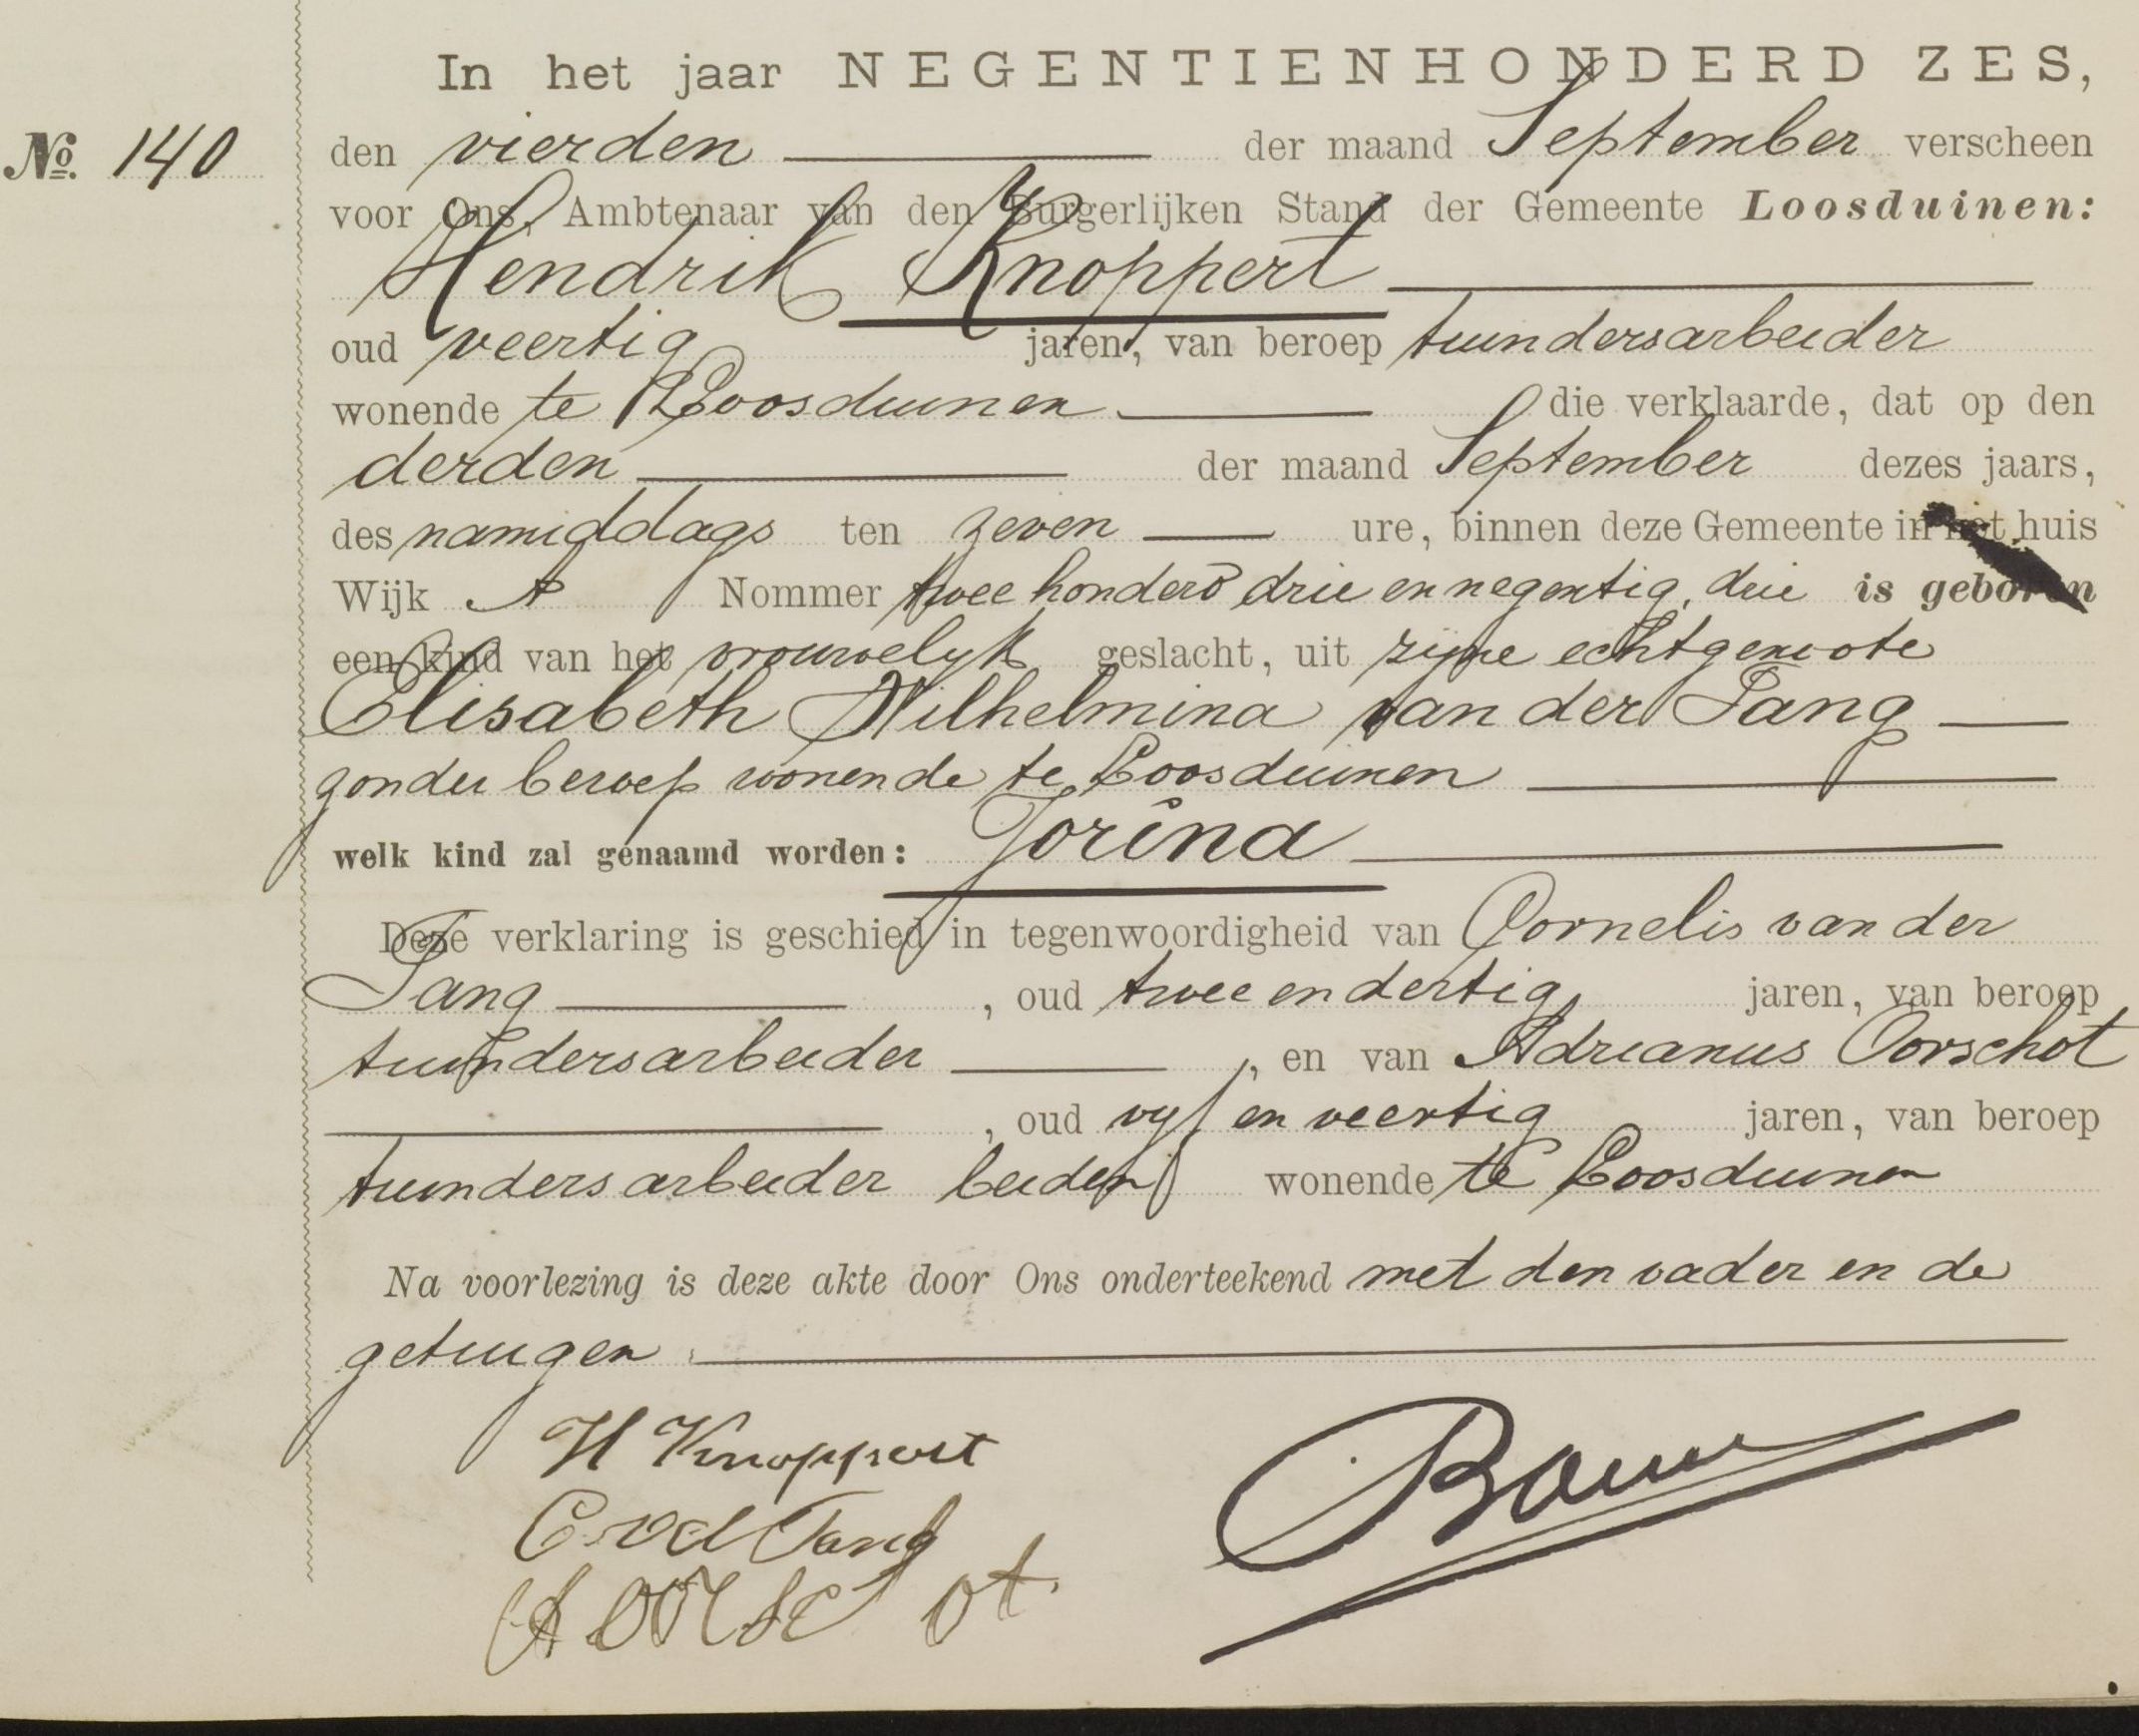 In het jaar NEGENTIENHONDERD ZES,
No. 140 den vierden der maand September verscheen
voor Ons, Ambtenaar van den Burgerlijken Stand der Gemeente Loosduinen:
Hendrik Knoppert
oud veertig jaren, van beroep tuindersarbeider
wonende te Loosduinen die verklaarde, dat op den
derden der maand September dezes jaars,
des namiddags ten zeven ure, binnen deze Gemeente in het huis
Wijk A Nommer twee honderd drie en negentig, drie is geboren
een kind van het vrouwelyk geslacht, uit zijne echtgenoote
Elisabeth Wilhelmina van der Tang
zonder beroep wonende te Loosduinen
welk kind zal genaamd worden: Jorina
Deze verklaring is geschied in tegenwoordigheid van Cornelis van der
Tang, oud twee en dertig jaren, van beroep
tuindersarbeider, en van Adrianus Oorschot
, oud vyf en veertig jaren, van beroep
tuindersarbeider beiden wonende te Loosduinen
Na voorlezing is deze akte door Ons onderteekend met den vader en de
getuigen.
H Knoppert
C. vd Tang
A oorschot
Bouw